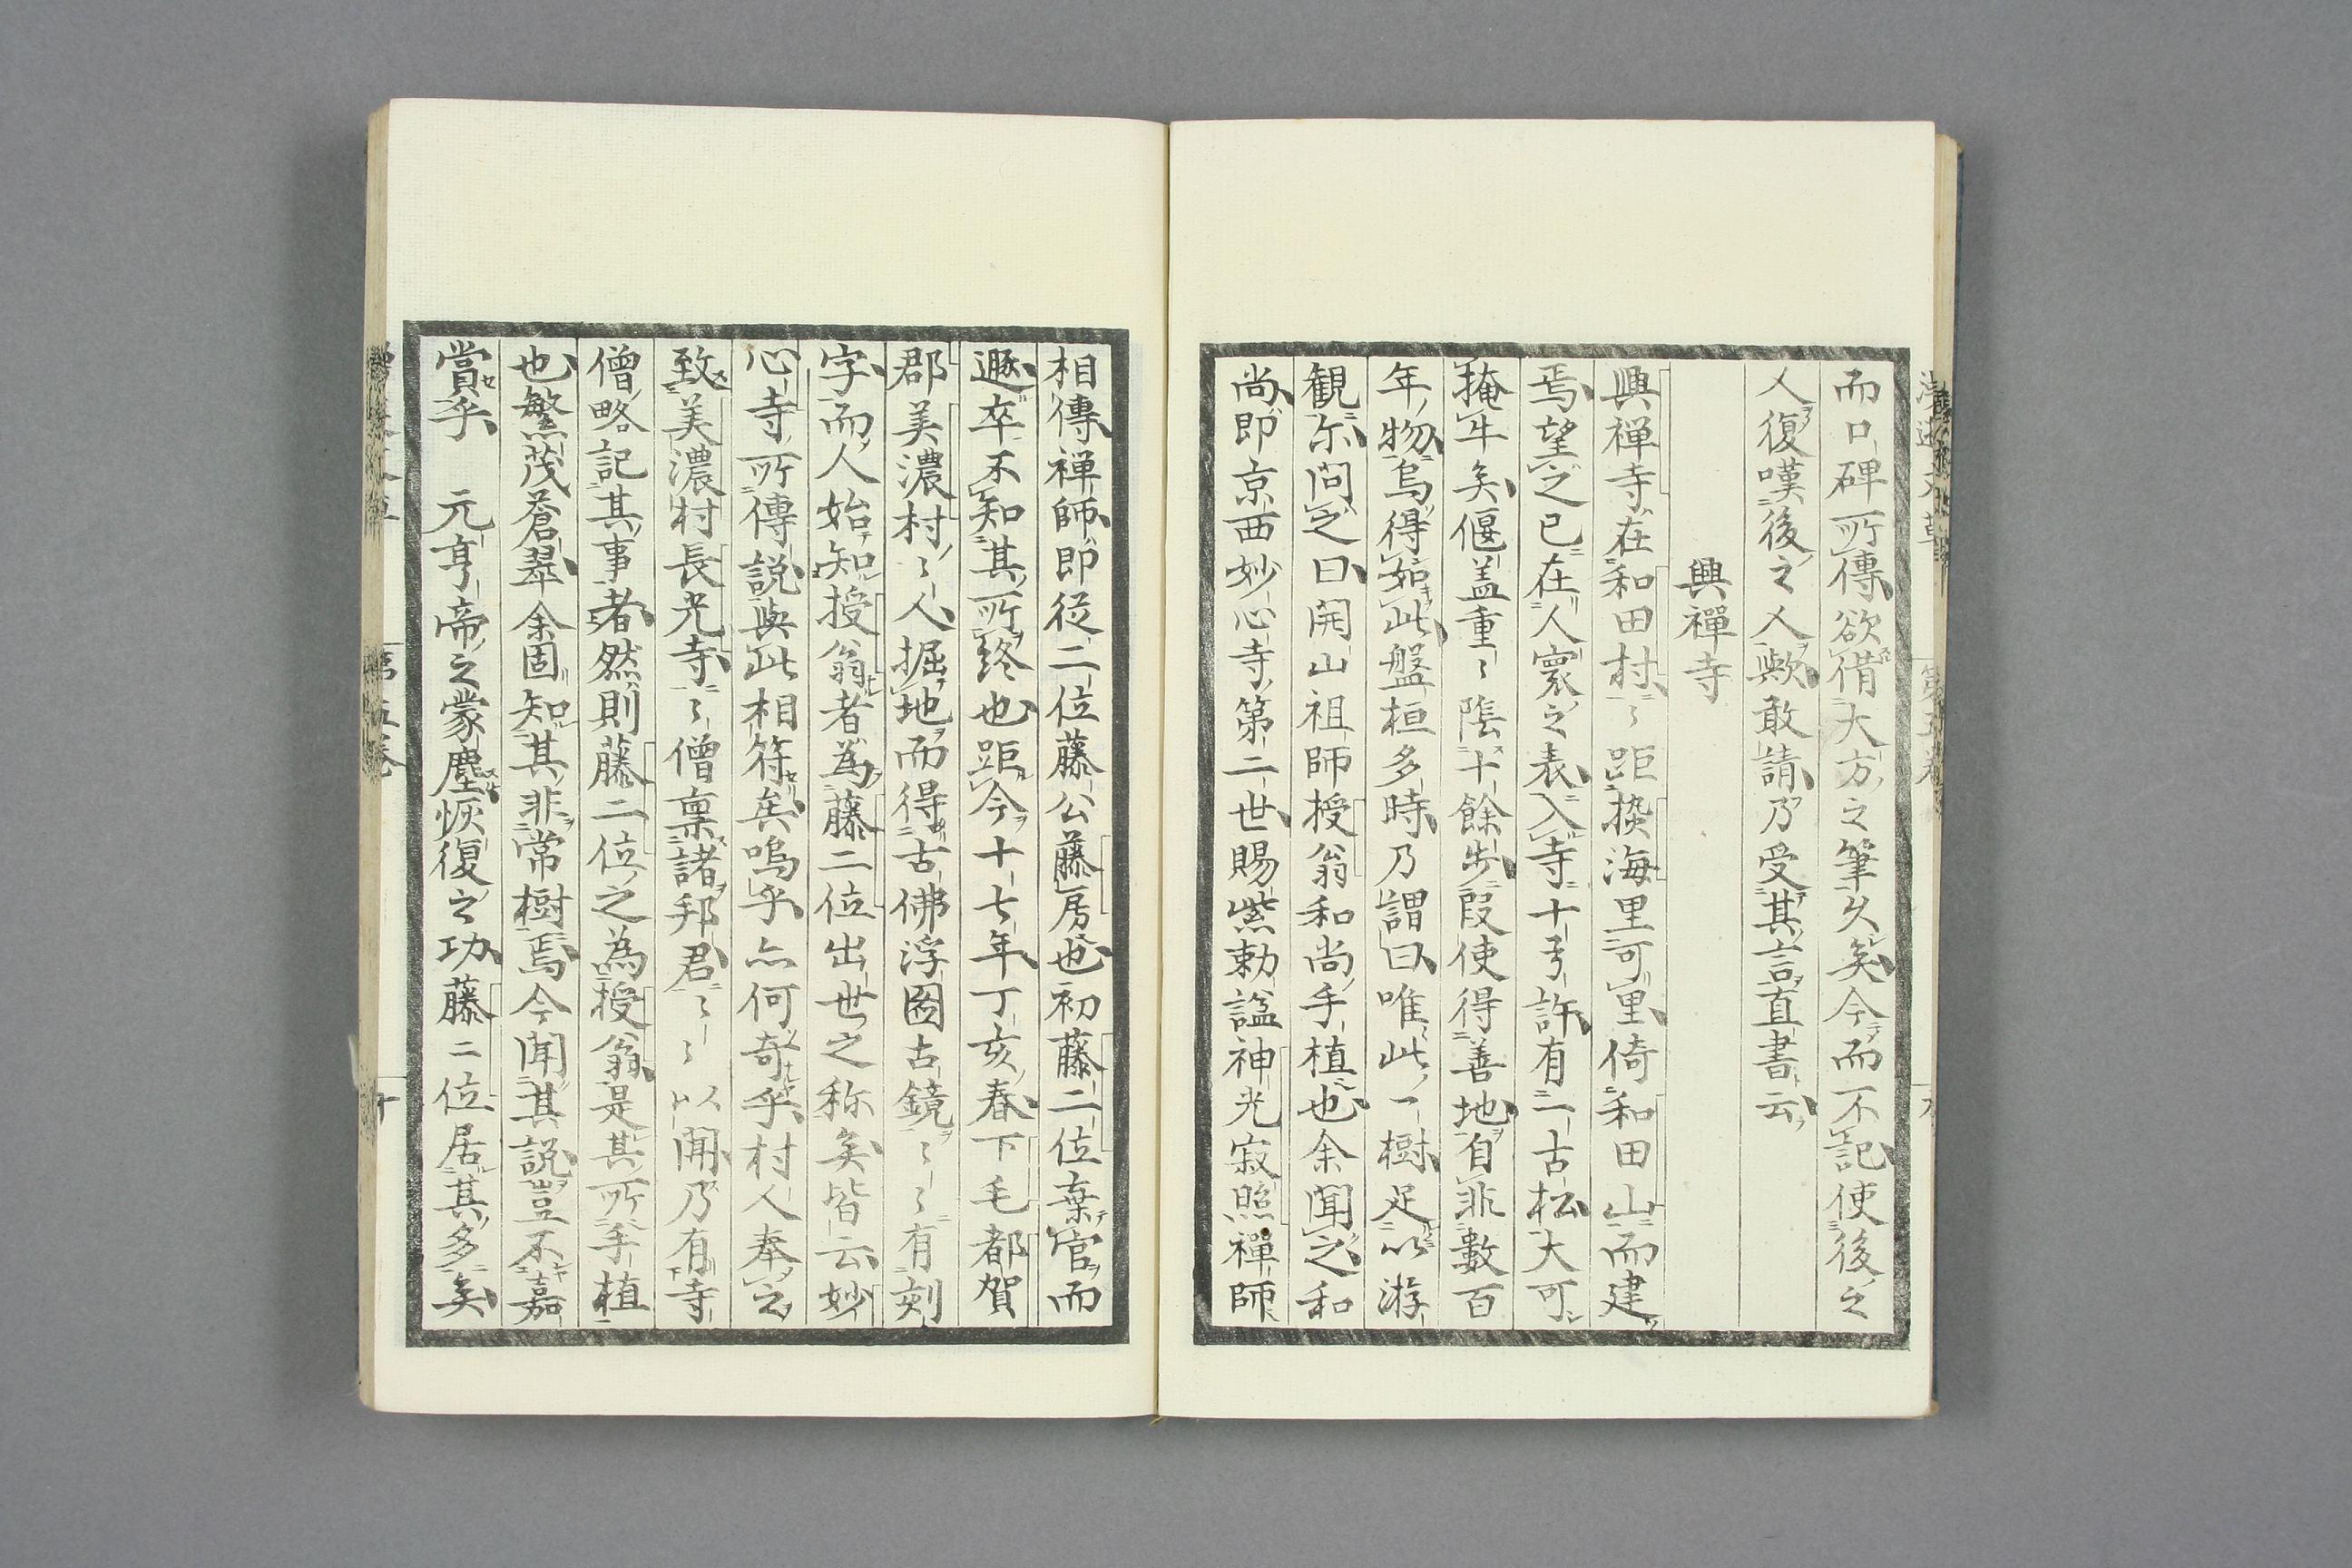 而口碑所傳欲借大方之筆久矣今而不記使後之
人復嘆後之人歟敢請乃受其言直書云
興禪寺
興禅寺在和田村々距換海里可里倚和田山而建
焉望之已在人寰之表入寺十弓許有一古松大可
掩牛矣偃盖重々陰十餘歩叚使得善地自非數百
年物烏得如此盤桓多時乃謂曰唯此一樹足以游
観尓問之曰開山祖師授翁和尚手植也余聞之和
尚即京西妙心寺第二世賜紫勅諡神光寂照禅師
相傳禅師即従二位藤公藤房也初藤二位棄官而
遯卒不知其所終也距今十七年丁亥春下毛都賀
郡美濃村々人掘地而得古佛浮圖古鏡々々有刻
字而人始知授翁者為藤二位出世之称矣皆云妙
心寺所傳説與此相符矣嗚乎亦何奇乎村人奉之
致美濃村長光寺々僧稟諸邦君々々以聞乃有寺
僧略記其事者然則藤二位之為授翁是其所手植
也繁茂蒼翠余固知其非常樹焉今聞其説豈不嘉
賞乎 元亨帝之蒙塵恢復之功藤二位居其多矣
第五巻